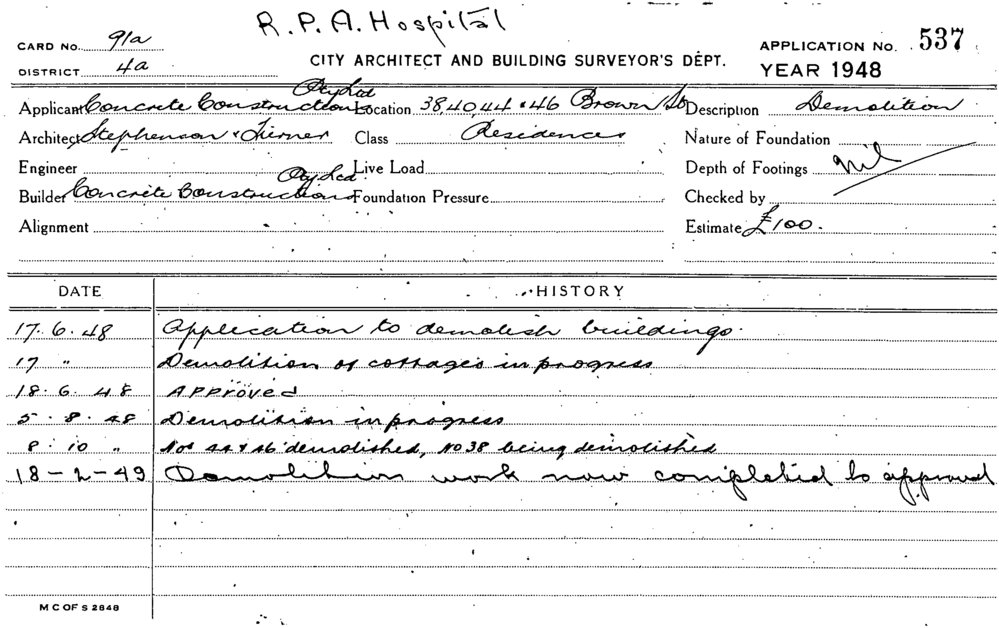 R. P. A. Hospital
CARD No. 91a
DISTRICT 4a
CITY ARCHITECT AND BUILDING SURVEYOR'S DEPT.
APPLICATION No. 537
YEAR 1948
Applicant Concrete Constructions Pty Ltd Location 38, 40, 44 & 46 Brown St Description Demolition
Architect Stephenson & Turner Class Residences Nature of Foundation
Engineer Live Load Depth of Footings Nil
Builder Concrete Constructions Pty Ltd Foundation Pressure Checked by
Alignment Estimate £100.
DATE HISTORY
17. 6. 48 Application to demolish buildings.
17 " Demolition of cottages in progress
18. 6. 48 Approved
5. 8. 48 Demolition in progress
8. 10 " Nos 44 & 46 demolished, No 38 being demolished
18-2-49 Demolition work now completed to approval
M C OF S 2848